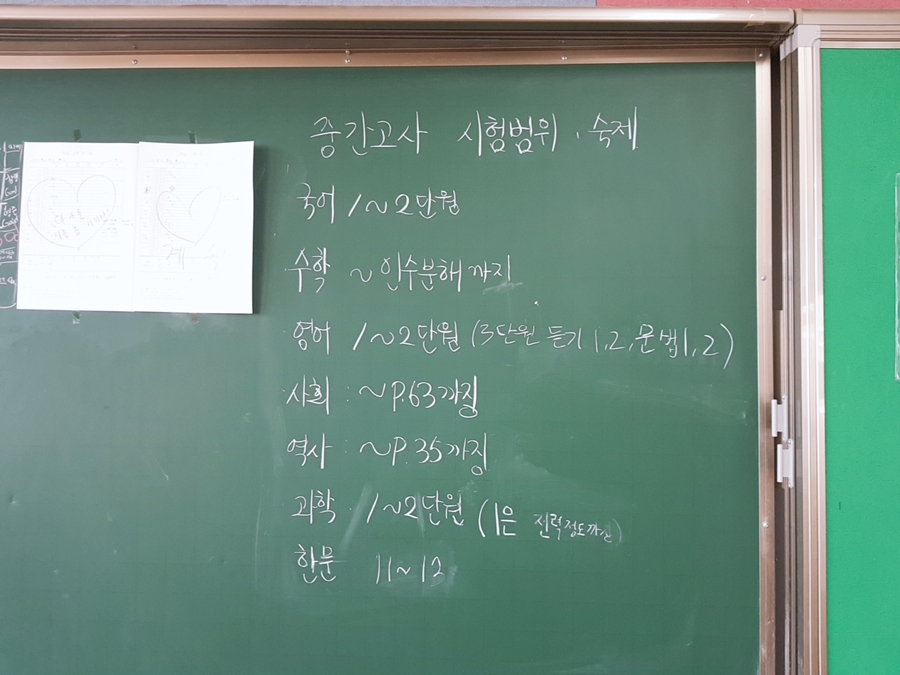 중간고사 시험범위 · 숙제
국어 1~2단원
수학 ~인수분해까지
영어 1~2단원 (3단원 듣기 1,2, 문법1,2)
사회 : ~P.63까징
역사 : ~P.35까징
과학 1~2단원 (1은 전력정도까진)
한문 11~12
계